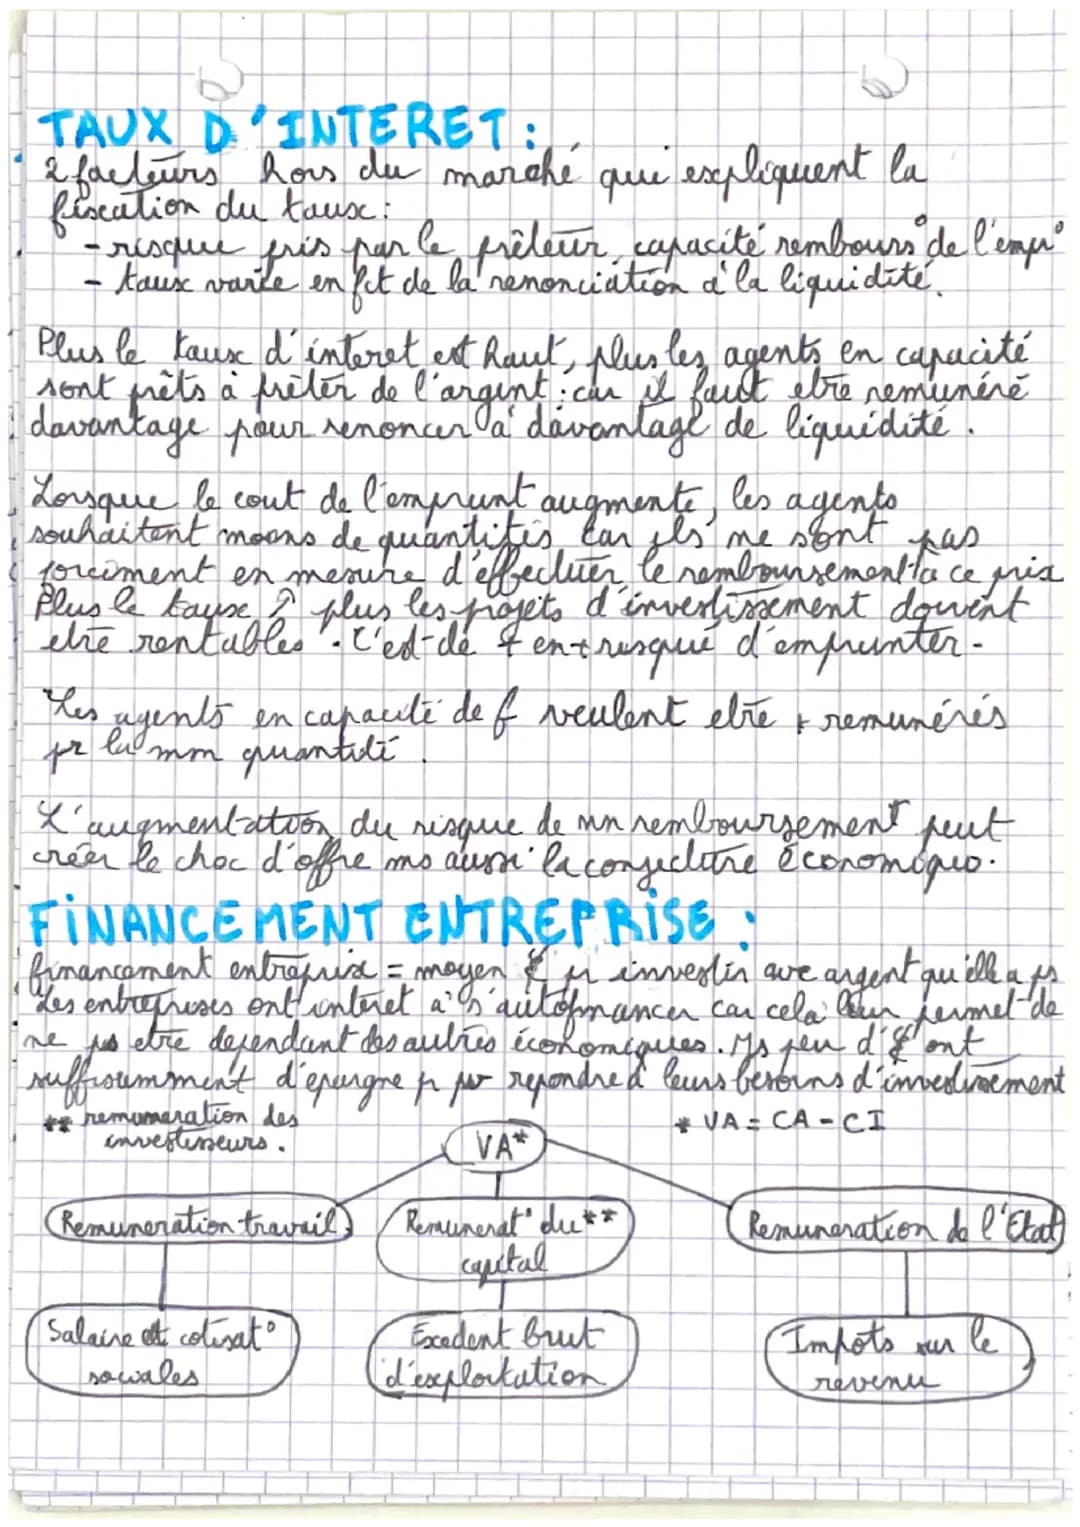 TAUX D'INTERET :
2 facteurs hors du marché qui expliquent la
fixation du taux :
- risque pris par le prêteur, capacité rembours° de l'empr°
- taux varie en fct de la renonciation à la liquidité.
Plus le taux d'interet est haut, plus les agents en capacité
sont prêts à prêter de l'argent : car il faut etre remunéré
davantage pour renoncer à davantage de liquidité.
Lorsque le cout de l'emprunt augmente, les agents
souhaitent moins de quantités car ils ne sont pas
forcément en mesure d'effectuer le remboursement à ce prix
Plus le taux ↗ plus les projets d'investissement doivent
etre rentables. C'est de + en + risqué d'emprunter.
Les agents en capacité de f veulent etre + remunérés
pr la mm quantité.
L'augmentation du risque de nn remboursement peut
créer le choc d'offre ms aussi la conjecture économique.
FINANCEMENT ENTREPRISE :
financement entreprise = moyen pr investir avc argent qu'elle a ps
Les entreprises ont interet à s'autofinancer car cela leur permet de
ne ps etre dependant des autres économiques. Ms peu d' ont
suffisamment d'epargne pr repondre à leurs besoins d'investissement
** remuneration des
investisseurs.
* VA = CA - CI
VA*
Remuneration travail
Remunerat° du **
capital
Remuneration de l'Etat
Salaire et cotisat°
sociales
Excedent brut
d'exploitation
Impots sur le
revenu